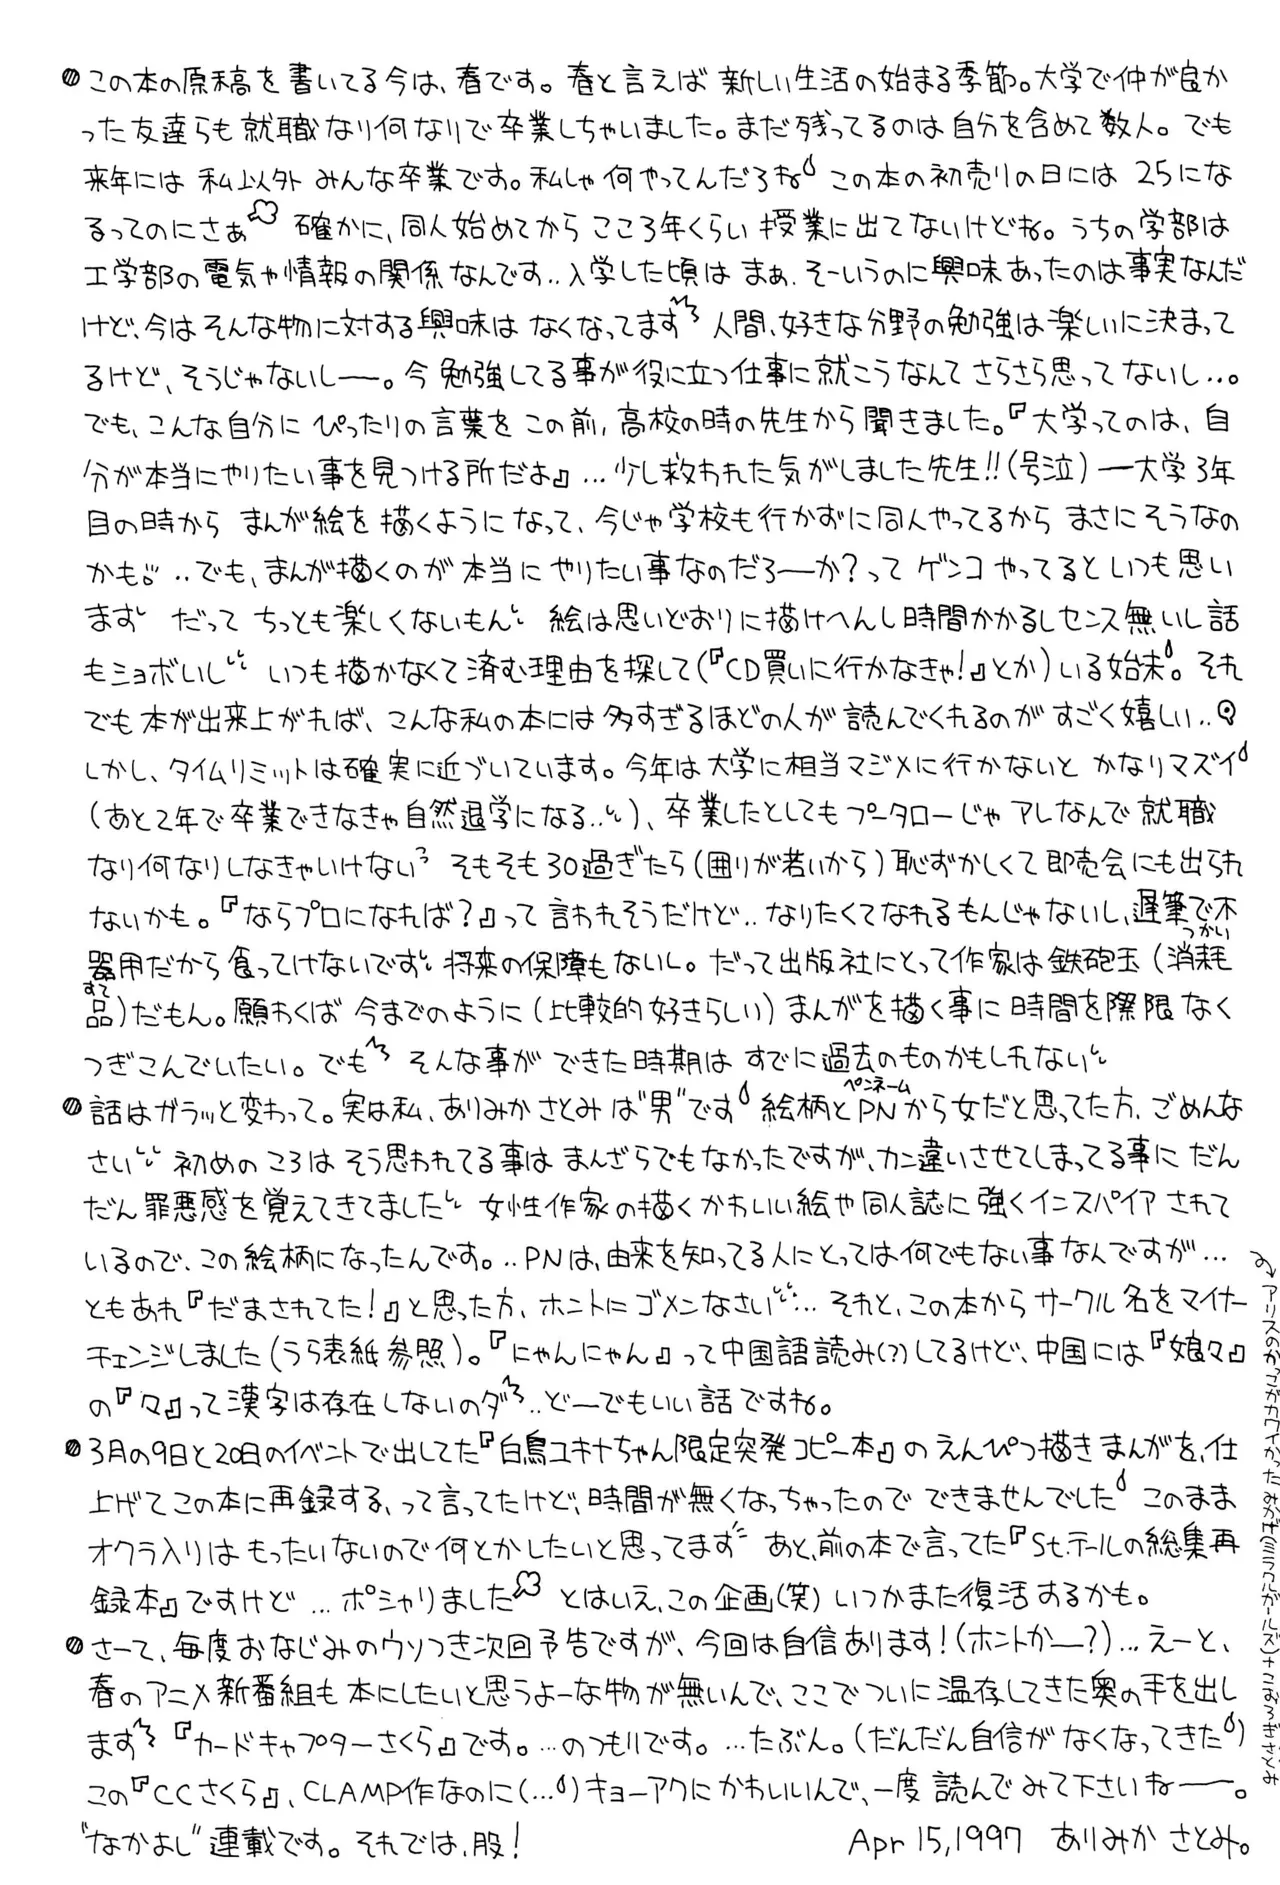 この本の原稿を書いてる今は、春です。春と言えば新しい生活の始まる季節。大学で仲が良か
った友達らも就職なり何なりで卒業しちゃいました。まだ残ってるのは自分を含めて数人。でも
来年には私以外みんな卒業です。私しゃ何やってんだろね この本の初売りの日には25にな
るってのにさぁ 確かに、同人始めてからここ3年くらい授業に出てないけどね。うちの学部は
工学部の電気や情報の関係なんです..入学した頃はまぁ、そーいうのに興味あったのは事実なんだ
けど、今はそんな物に対する興味はなくなってます 人間、好きな分野の勉強は楽しいに決まって
るけど、そうじゃないしー。今勉強してる事が役に立つ仕事に就こうなんてさらさら思ってないし...。
でも、こんな自分にぴったりの言葉をこの前、高校の時の先生から聞きました。『大学ってのは、自
分が本当にやりたい事を見つける所だよ』...少し救われた気がしました先生!!(号泣)ー大学3年
目の時からまんが絵を描くようになって、今じゃ学校も行かずに同人やってるからまさにそうなの
かも。..でも、まんが描くのが本当にやりたい事なのだろーか?ってゲンコやってるといつも思い
ます だってちっとも楽しくないもん 絵は思いどおりに描けへんし時間かかるしセンス無いし話
もショボいし いつも描かなくて済む理由を探して(『CD買いに行かなきゃ!』とか)いる始末。それ
でも本が出来上がれば、こんな私の本には多すぎるほどの人が読んでくれるのがすごく嬉しい..
しかし、タイムリミットは確実に近づいています。今年は大学に相当マジメに行かないとかなりマズイ
(あと2年で卒業できなきゃ自然退学になる..)、卒業したとしてもプータローじゃアレなんで就職
なり何なりしなきゃいけない そもそも30過ぎたら(囲りが若いから)恥ずかしくて即売会にも出られ
ないかも。『ならプロになれば?』って言われそうだけど..なりたくてなれるもんじゃないし、遅筆で不
器用だから食ってけないです 将来の保障もないし。だって出版社にとって作家は鉄砲玉(消耗
つかい
すて
品)だもん。願わくば今までのように(比較的好きらしい)まんがを描く事に時間を際限なく
つぎこんでいたい。でも そんな事ができた時期はすでに過去のものかもしれない
ペンネーム
話はガラッと変わって。実は私、ありみかさとみは"男"です 絵柄とPNから女だと思ってた方、ごめんな
さい 初めのころはそう思われてる事はまんざらでもなかったですが、カン違いさせてしまってる事にだん
だん罪悪感を覚えてきてました 女性作家の描くかわいい絵や同人誌に強くインスパイアされて
いるので、この絵柄になったんです。..PNは、由来を知ってる人にとっては何でもない事なんですが...
ともあれ『だまされてた!』と思った方、ホントにゴメンなさい... それと、この本からサークル名をマイナー
チェンジしました(うら表紙参照)。『にゃんにゃん』って中国語読み(?)してるけど、中国には『娘々』
の『々』って漢字は存在しないのダ ..どーでもいい話ですね。
3月の9日と20日のイベントで出してた『白鳥ユキナちゃん限定突発コピー本』のえんぴつ描きまんがを、仕
上げてこの本に再録する、って言ってたけど、時間が無くなっちゃったのでできませんでした このまま
オクラ入りはもったいないので何とかしたいと思ってます あと、前の本で言ってた『St.テールの総集再
録本』ですけど...ポシャりました とはいえ、この企画(笑)いつかまた復活するかも。
さーて、毎度おなじみのウソつき次回予告ですが、今回は自信あります!(ホントかー?)...えーと、
春のアニメ新番組も本にしたいと思うよーな物が無いんで、ここでついに温存してきた奥の手を出し
ます 『カードキャプターさくら』です。...のつもりです。...たぶん。(だんだん自信がなくなってきた)
この『CCさくら』、CLAMP作なのに(...)キョーアクにかわいいんで、一度読んでみて下さいねー。
"なかよし"連載です。それでは、股!
Apr 15,1997 ありみかさとみ。
アリスのかっこがカワイかったみかげ(ミラクルガールズ)+こおろぎさとみ